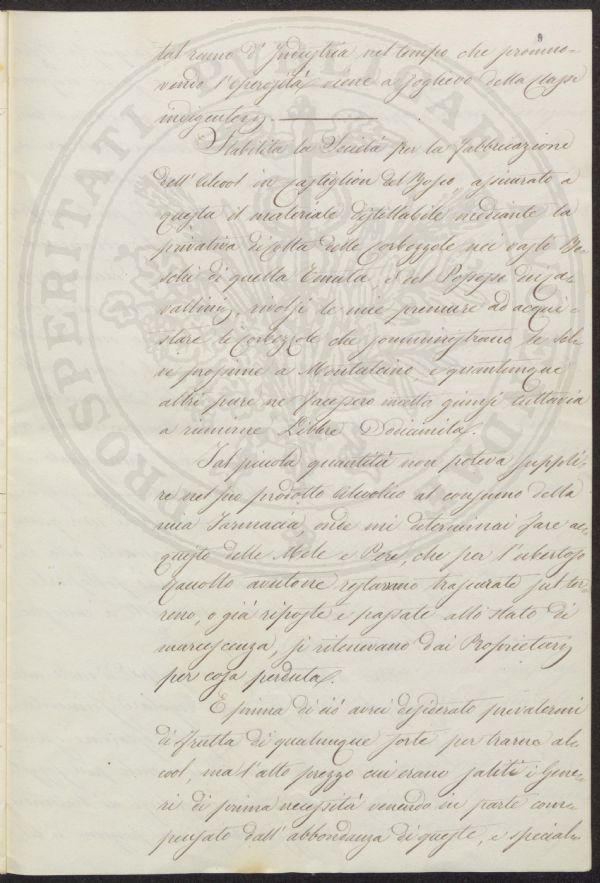 9
tal ramo d'Industria, nel tempo che promuo=
vendo l'operosità viene a sollievo della classe
indigente.
Stabilita la Società per la fabbricazione
dell'Alcool in Castiglion del Bosco, assicurato a
questa il materiale distillabile mediante la
privativa di colta delle Corbezzole nei vasti Bo=
schi di quella Tenuta, e del Possesso dei Ca=
vallini, rivolsi le mie premure ad acqui=
stare le Corbezzole che somministrano le Sel=
ve prossime a Montalcino e quantunque
altri pure ne facessero incetta giunsi tuttavia
a riunirne Libbre Dodicimila.
Tal piccola quantità non poteva suppli=
re nel suo prodotto Alcoolico al consumo della
mia Farmacia, onde mi determinai fare ac=
quisto delle Mele e Pere, che per l'ubertoso
raccolto avutone restavano trascurate sul ter=
reno, o già riposte e passate allo stato di
marcescenza, si ritenevano dai Proprietarj
per cosa perduta.
E prima di ciò avrei desiderato prevalermi
di frutta di qualunque sorte per trarne al=
cool, ma l'alto prezzo cui erano saliti i Gene=
ri di prima necessità venendo in parte com=
pensato dall'abbondanza di queste, e special=
PROSPERITATI PUBLICAE AUGENDAE